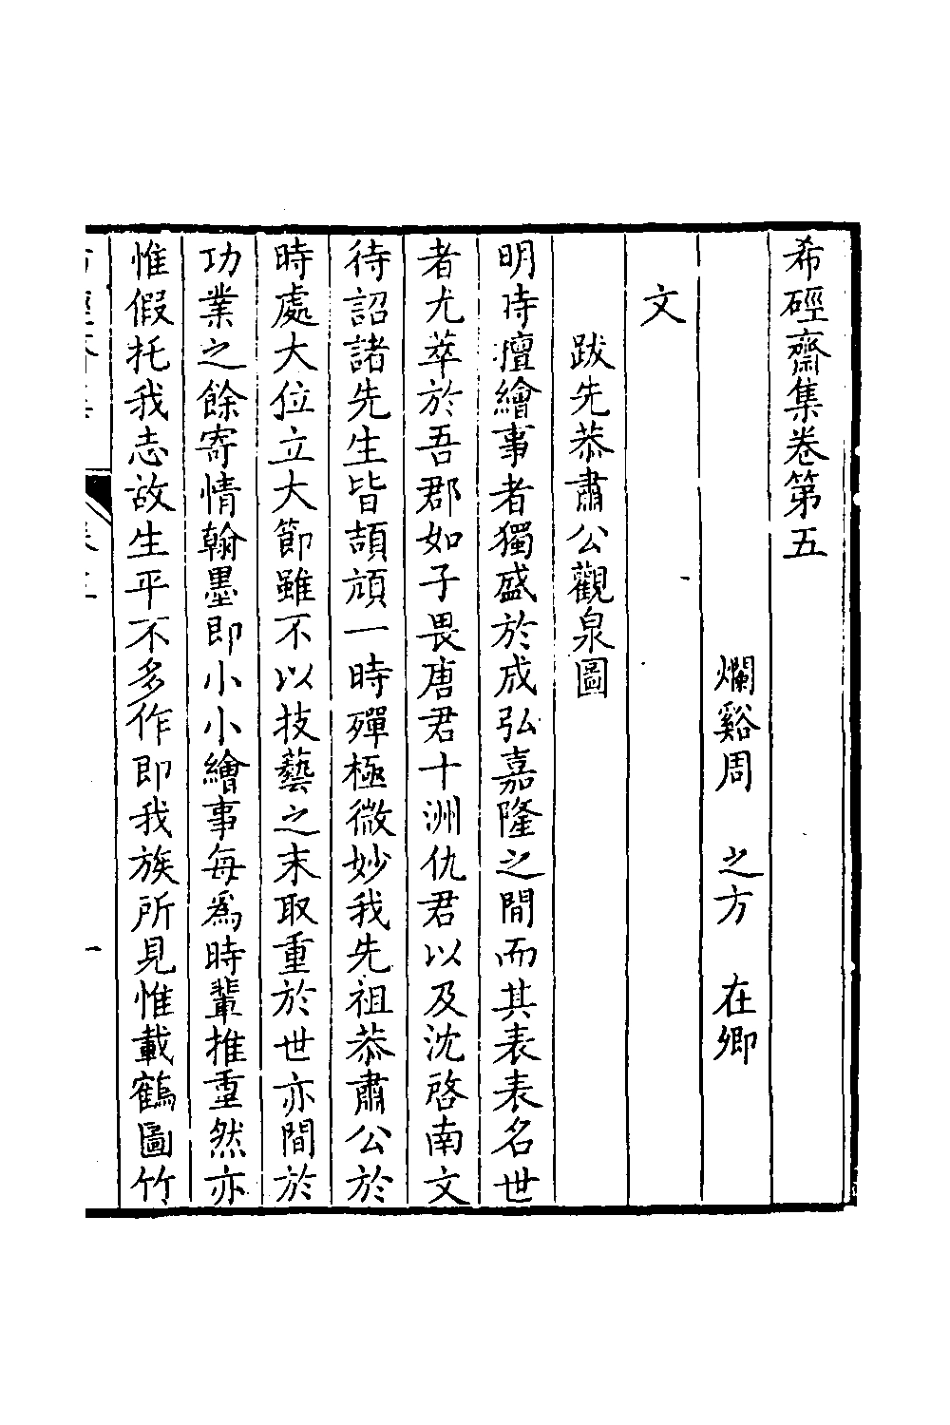 希硜齋集卷第五
爛谿周 之方 在卿
文
跋先恭肅公觀泉圖
明时擅繪事者獨盛於成弘嘉隆之間而其表表名世
者尤萃於吾郡如子畏唐君十洲仇君以及沈啓南文
待詔諸先生皆頡頏一時殫極微妙我先祖恭肅公於
時處大位立大節雖不以技藝之末取重於世亦間於
功業之餘寄情翰墨即小小繪事每爲時輩推重然亦
惟假托我志故生平不多作即我族所見惟載鶴圖竹